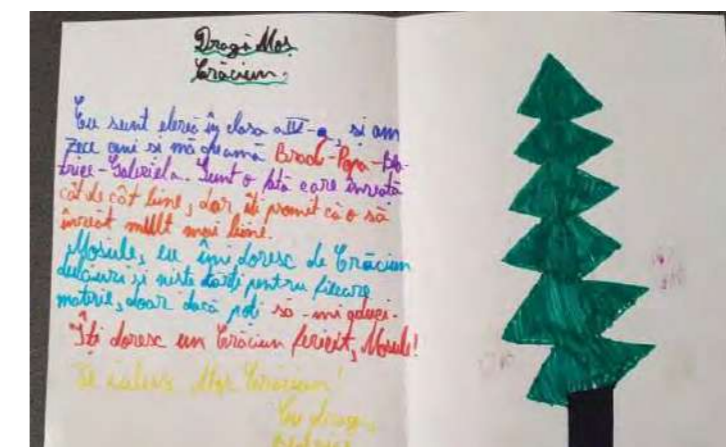 Dragă Moș
Crăciun,
Eu sunt elevă în clasa a III-a, și am
zece ani și mă cheamă Brado-Popa-Bea-
trice-Gabriela. Sunt o fată care învață
cât de cât bine, dar îți promit că o să
învăt mult mai bine.
Moșule, eu îmi doresc de Crăciun
dulciuri și niște cărți pentru fiecare
materie, doar dacă poți să-mi aduci.
Îți doresc un Crăciun fericit, Moșule!
Te iubesc Moș Crăciun!
Cu drag,
Beatrice